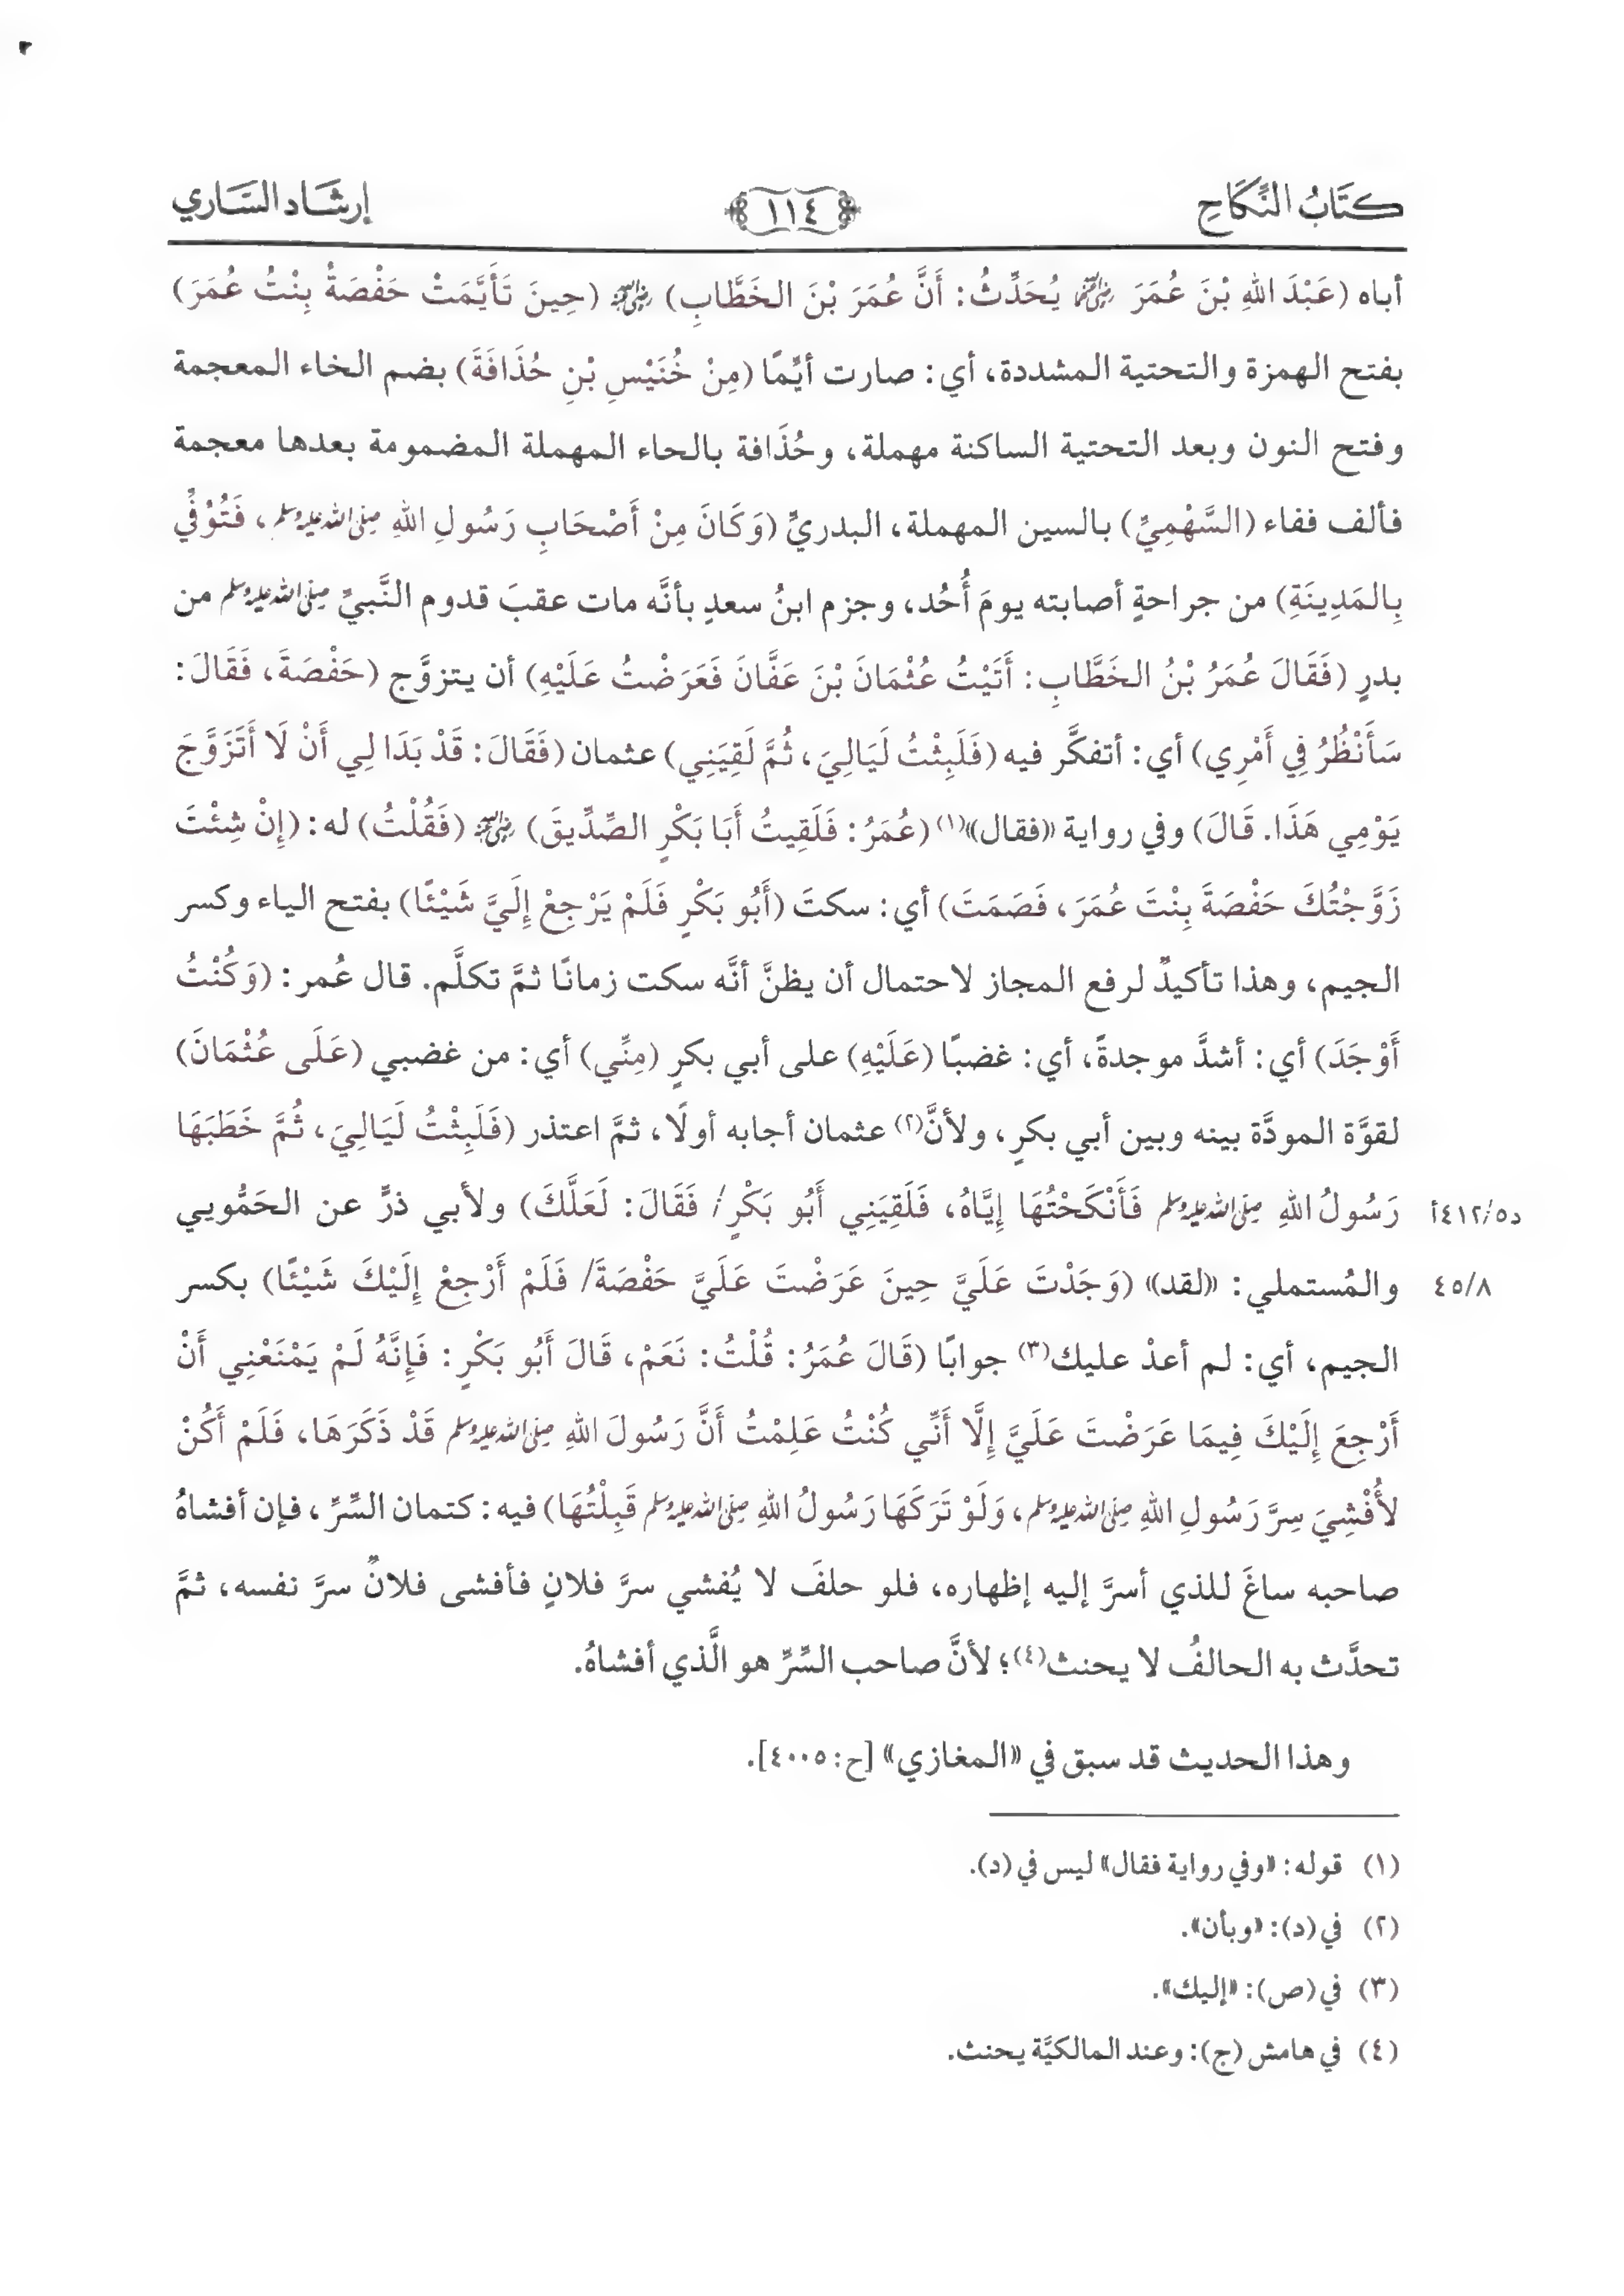 كتَابُ النِّكَاحِ
١١٤
إرشَاد السَّاري
أباه (عَبْدَ اللهِ بْنَ عُمَرَ ﵄ يُحَدِّثُ: أَنَّ عُمَرَ بْنَ الخَطَّابِ) ﵁ (حِينَ تَأَيَّمَتْ حَفْصَةُ بِنْتُ عُمَرَ)
بفتح الهمزة والتحتية المشددة، أي: صارت أيِّمًا (مِنْ خُنَيْسِ بْنِ حُذَافَةَ) بضم الخاء المعجمة
وفتح النون وبعد التحتية الساكنة مهملة، وحُذَافة بالحاء المهملة المضمومة بعدها معجمة
فألف ففاء (السَّهْمِيِّ) بالسين المهملة، البدريِّ (وَكَانَ مِنْ أَصْحَابِ رَسُولِ اللهِ ﷺ، فَتُوُفِّيَ
بِالمَدِينَةِ) من جراحةٍ أصابته يومَ أُحُد، وجزم ابنُ سعدٍ بأنَّه مات عقبَ قدوم النَّبيِّ ﷺ من
بدرٍ (فَقَالَ عُمَرُ بْنُ الخَطَّابِ: أَتَيْتُ عُثْمَانَ بْنَ عَفَّانَ فَعَرَضْتُ عَلَيْهِ) أن يتزوَّج (حَفْصَةَ، فَقَالَ:
سَأَنْظُرُ فِي أَمْرِي) أي: أتفكَّر فيه (فَلَبِثْتُ لَيَالِيَ، ثُمَّ لَقِيَنِي) عثمان (فَقَالَ: قَدْ بَدَا لِي أَنْ لَا أَتَزَوَّجَ
يَوْمِي هَذَا. قَالَ) وفي رواية «فقال»(١) (عُمَرُ: فَلَقِيتُ أَبَا بَكْرٍ الصِّدِّيقَ) ﵁ (فَقُلْتُ) له: (إِنْ شِئْتَ
زَوَّجْتُكَ حَفْصَةَ بِنْتَ عُمَرَ، فَصَمَتَ) أي: سكتَ (أَبُو بَكْرٍ فَلَمْ يَرْجِعْ إِلَيَّ شَيْئًا) بفتح الياء وكسر
الجيم، وهذا تأكيدٌ لرفع المجاز لاحتمال أن يظنَّ أنَّه سكت زمانًا ثمَّ تكلَّم. قال عُمر: (وَكُنْتُ
أَوْجَدَ) أي: أشدَّ موجدةً، أي: غضبًا (عَلَيْهِ) على أبي بكرٍ (مِنِّي) أي: من غضبي (عَلَى عُثْمَانَ)
لقوَّة المودَّة بينه وبين أبي بكرٍ، ولأنَّ(٢) عثمان أجابه أولًا، ثمَّ اعتذر (فَلَبِثْتُ لَيَالِيَ، ثُمَّ خَطَبَهَا
رَسُولُ اللهِ ﷺ فَأَنْكَحْتُهَا إِيَّاهُ، فَلَقِيَنِي أَبُو بَكْرٍ/ فَقَالَ: لَعَلَّكَ) ولأبي ذرٍّ عن الحَمُّويي
د٤١٢/٥أ
والمُستملي: «لقد» (وَجَدْتَ عَلَيَّ حِينَ عَرَضْتَ عَلَيَّ حَفْصَةَ/ فَلَمْ أَرْجِعْ إِلَيْكَ شَيْئًا) بكسر
٤٥/٨
الجيم، أي: لم أعدْ عليك(٣) جوابًا (قَالَ عُمَرُ: قُلْتُ: نَعَمْ، قَالَ أَبُو بَكْرٍ: فَإِنَّهُ لَمْ يَمْنَعْنِي أَنْ
أَرْجِعَ إِلَيْكَ فِيمَا عَرَضْتَ عَلَيَّ إِلَّا أَنِّي كُنْتُ عَلِمْتُ أَنَّ رَسُولَ اللهِ ﷺ قَدْ ذَكَرَهَا، فَلَمْ أَكُنْ
لأُفْشِيَ سِرَّ رَسُولِ اللهِ ﷺ، وَلَوْ تَرَكَهَا رَسُولُ اللهِ ﷺ قَبِلْتُهَا) فيه: كتمان السِّرِّ، فإن أفشاهُ
صاحبه ساغَ للذي أسرَّ إليه إظهاره، فلو حلفَ لا يُفشي سرَّ فلانٍ فأفشى فلانٌ سرَّ نفسه، ثمَّ
تحدَّث به الحالفُ لا يحنث(٤)؛ لأنَّ صاحب السِّرِّ هو الَّذي أفشاهُ.
وهذا الحديث قد سبق في «المغازي» [ح: ٤٠٠٥].
(١) قوله: «وفي رواية فقال» ليس في (د).
(٢) في (د): «وبأن».
(٣) في (ص): «إليك».
(٤) في هامش (ج): وعند المالكيَّة يحنث.